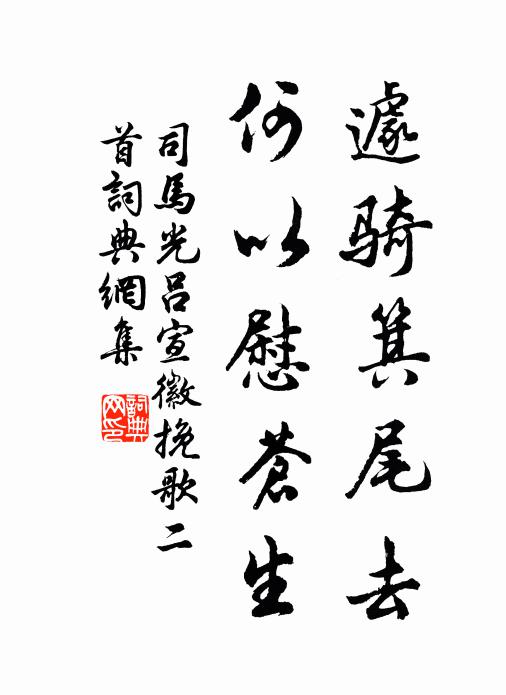 遽騎箕尾去
何以慰蒼生
司馬光呂宣徽挽歌二
首詞典網集
詞典
网印